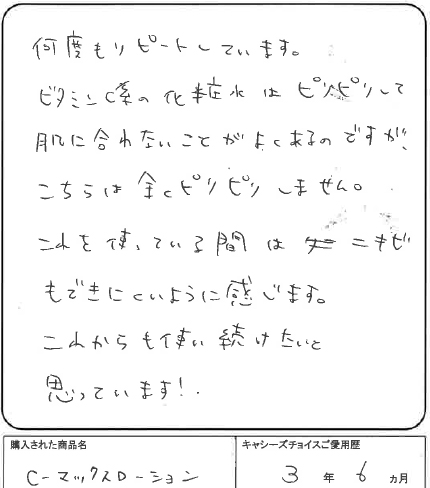 何度もリピートしています。
ビタミンC系の化粧水はピリピリして
肌に合わないことがよくあるのですが、
こちらは全くピリピリしません。
これを使っている間はニキビ
もできにくいように感じます。
これからも使い続けたいと
思っています!.
購入された商品名
キャシーズチョイスご愛用歴
C-マックスローション
3年6ヵ月